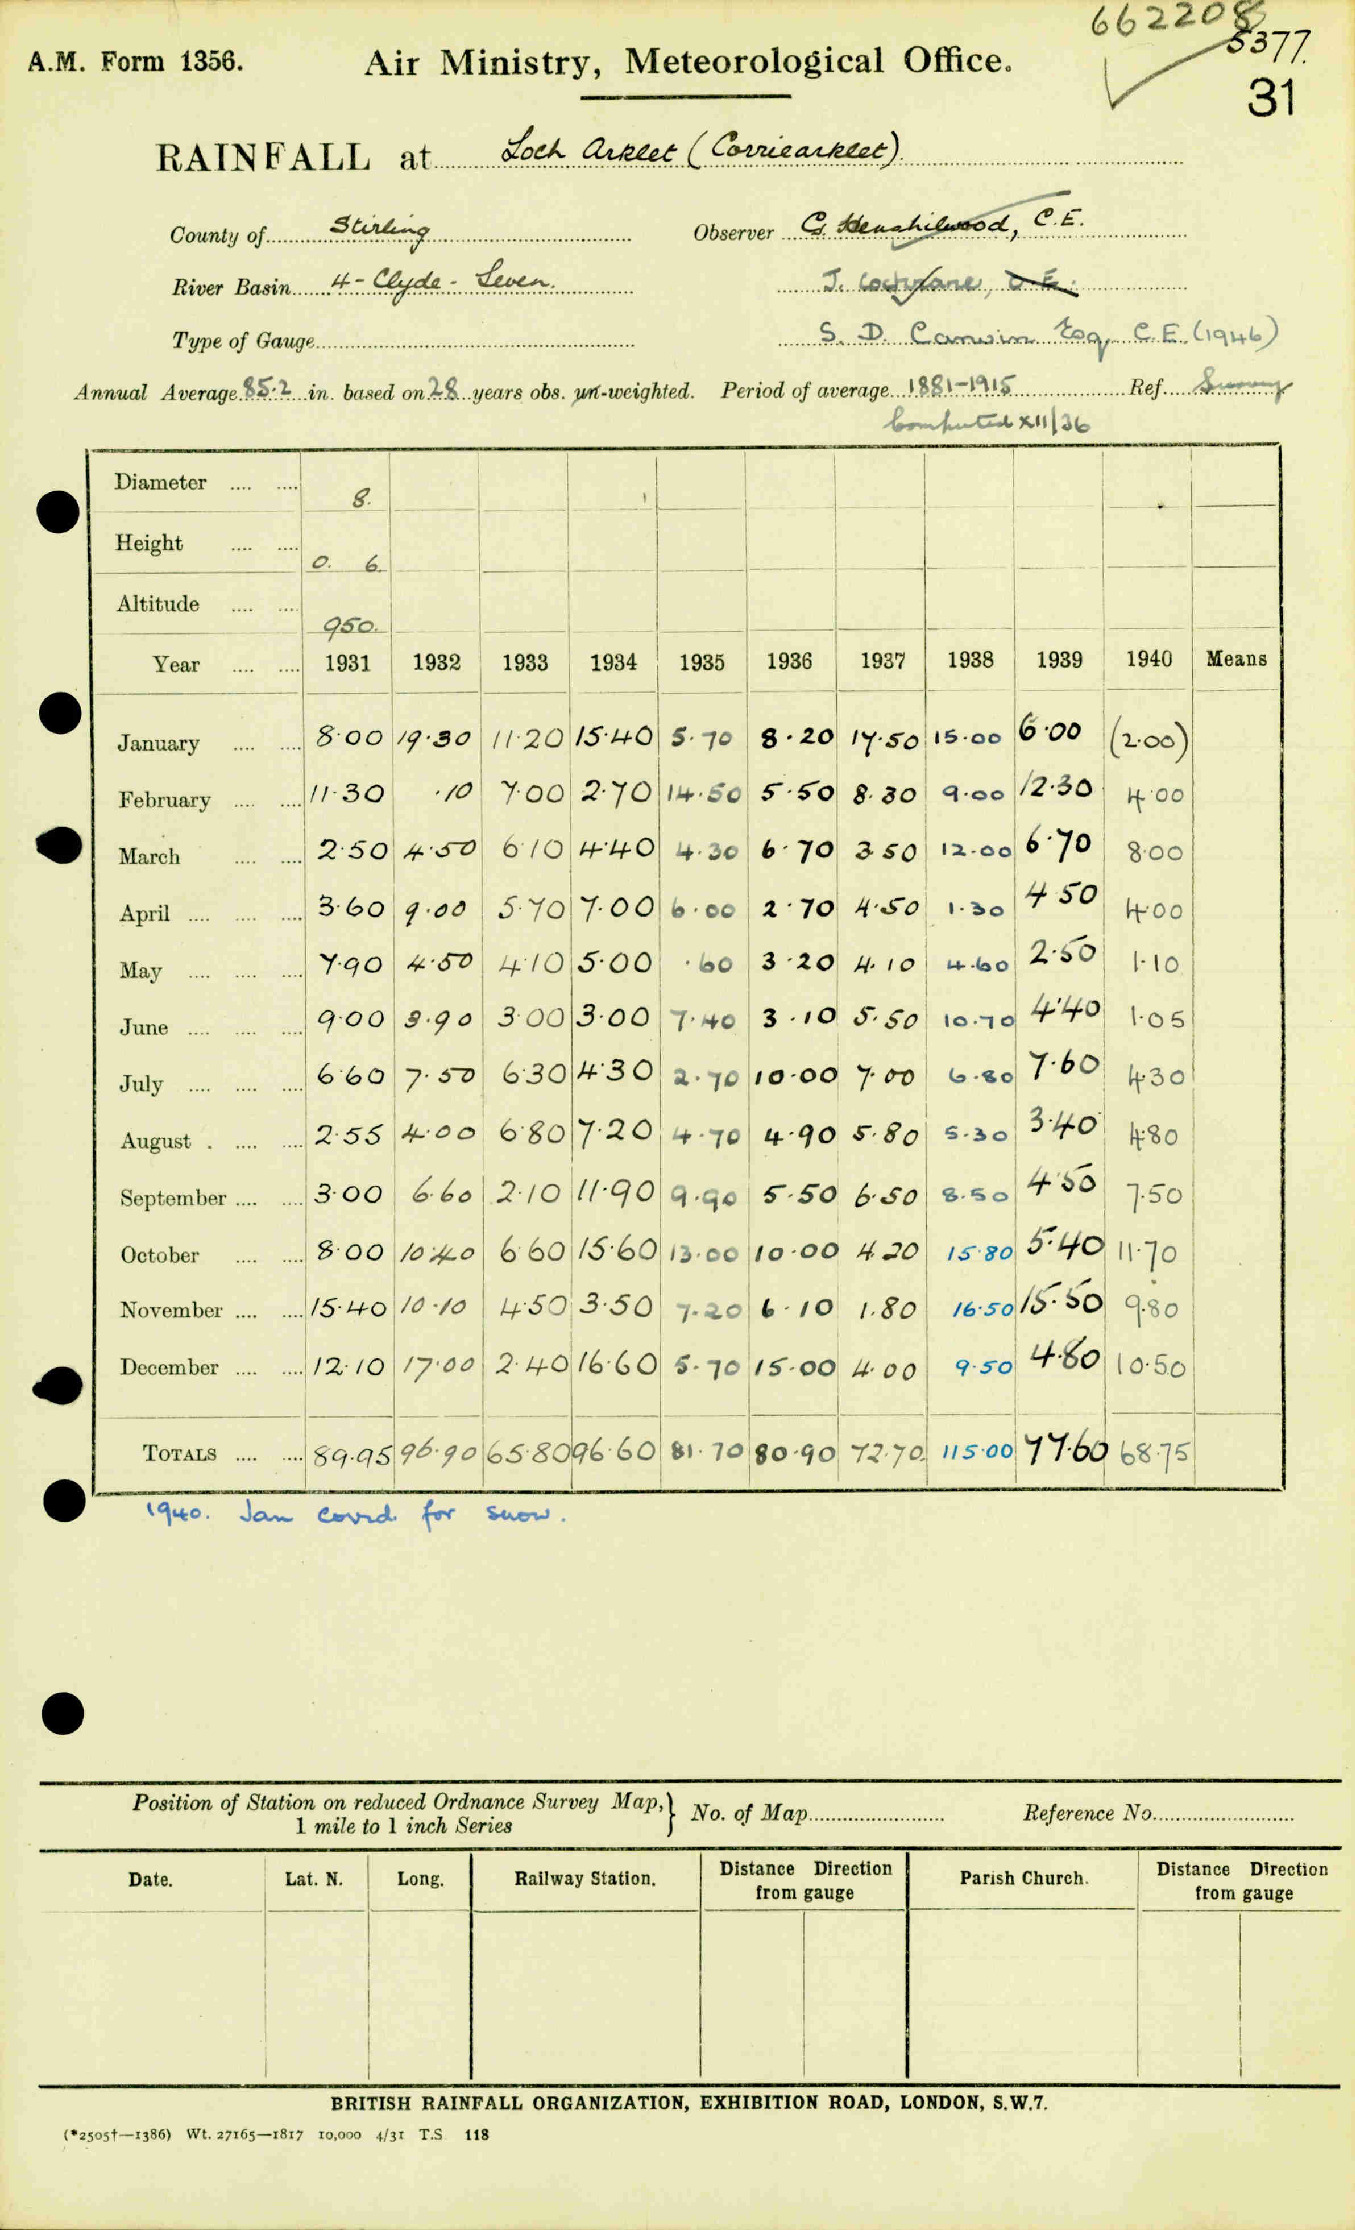 662208
5377.
A.M. Form 1356. Air Ministry, Meteorological Office.
31
RAINFALL at Loch Arklet (Corriearklet)
County of Stirling Observer C. Henshilwood, C.E.
River Basin 4 - Clyde - Leven. J. Cochrane, C.E.
Type of Gauge S. D. Esq. C.E. (1946)
Annual Average 85.2 in. based on 28 years obs. un-weighted. Period of average 1881-1915 Ref.
Computed XII/36
Diameter 8.
Height 0. 6.
Altitude 950.
Year 1931 1932 1933 1934 1935 1936 1937 1938 1939 1940 Means
January 8.00 19.30 11.20 15.40 5.70 8.20 17.50 15.00 6.00 (2.00)
February 11.30 .10 7.00 2.70 14.50 5.50 8.30 9.00 12.30 4.00
March 2.50 4.50 6.10 4.40 4.30 6.70 3.50 12.00 6.70 8.00
April 3.60 9.00 5.70 7.00 6.00 2.70 4.50 1.30 4.50 4.00
May 7.90 4.50 4.10 5.00 .60 3.20 4.10 4.60 2.50 1.10
June 9.00 3.90 3.00 3.00 7.40 3.10 5.50 10.70 4.40 1.05
July 6.60 7.50 6.30 4.30 2.70 10.00 7.00 6.80 7.60 4.30
August 2.55 4.00 6.80 7.20 4.70 4.90 5.80 5.30 3.40 4.80
September 3.00 6.60 2.10 11.90 9.90 5.50 6.50 8.50 4.50 7.50
October 8.00 10.40 6.60 15.60 13.00 10.00 4.20 15.80 5.40 11.70
November 15.40 10.10 4.50 3.50 7.20 6.10 1.80 16.50 15.50 9.80
December 12.10 17.00 2.40 16.60 5.70 15.00 4.00 9.50 4.80 10.50
TOTALS 89.95 96.90 65.80 96.60 81.70 80.90 72.70 115.00 77.60 68.75
1940. Jan covrd for snow.
Position of Station on reduced Ordnance Survey Map, } No. of Map Reference No.
1 mile to 1 inch Series
Date. Lat. N. Long. Railway Station. Distance Direction from gauge Parish Church. Distance Direction from gauge
BRITISH RAINFALL ORGANIZATION, EXHIBITION ROAD, LONDON, S.W.7.
(*2505†—1386) Wt. 27165—1817 10,000 4/31 T.S. 118